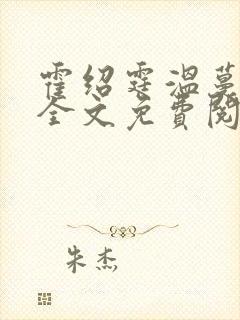 霍绍霆温蔓
全文免费阅
朱杰